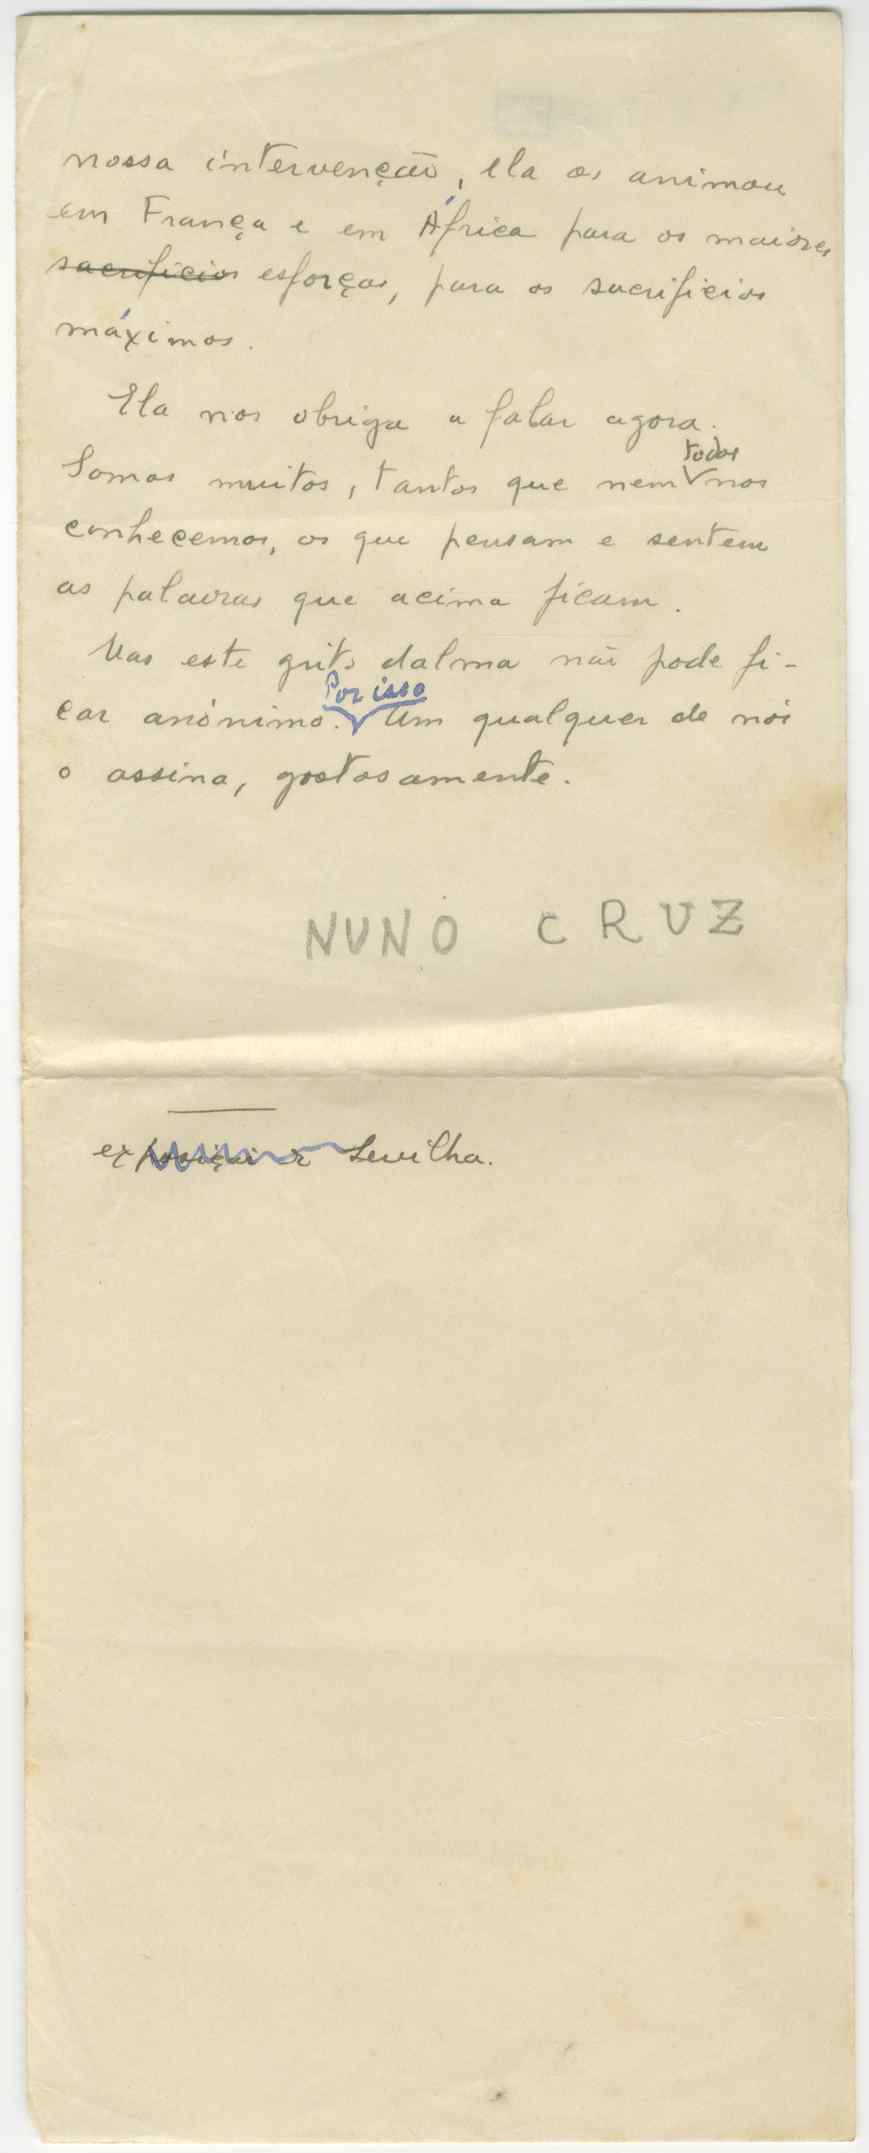 nossa intervenção, ela os animou
em França e em África para os maiores
sacrificios esforços, para os sacrificios
máximos.
Ela nos obriga a falar agora.
Somos muitos, tantos que nem todos nos
conhecemos, os que pensam e sentem
as palavras que acima ficam.
Mas este grito dalma não pode fi-
car anónimo. Por isso Um qualquer de nós
o assina, gostosamente.
NUNO CRUZ
exposição de Sevilha.